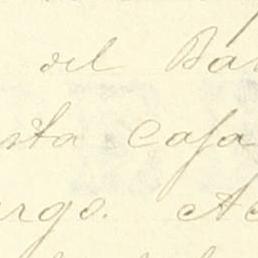 del Ba
sta Casa
argo. Ac